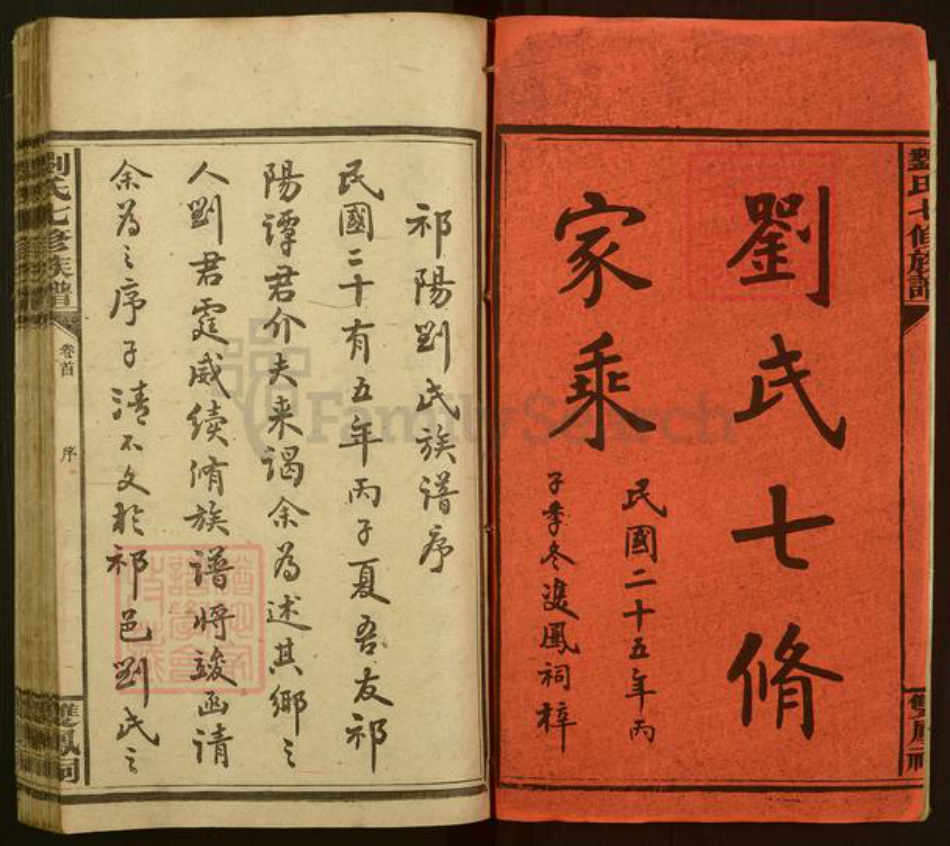 劉氏七修族譜
雙鳳祠
劉氏七脩
家乘
民國二十五年丙
子季冬雙鳳祠梓
祁陽劉氏族譜序
民國二十有五年丙子夏吾友祁
陽譚君介夫来謁余為述其鄉之
人劉君霆威續脩族譜將竣函請
余為之序子清不文於祁邑劉氏之
劉氏七修族譜
卷首
序
雙鳳祠
FamilySearch